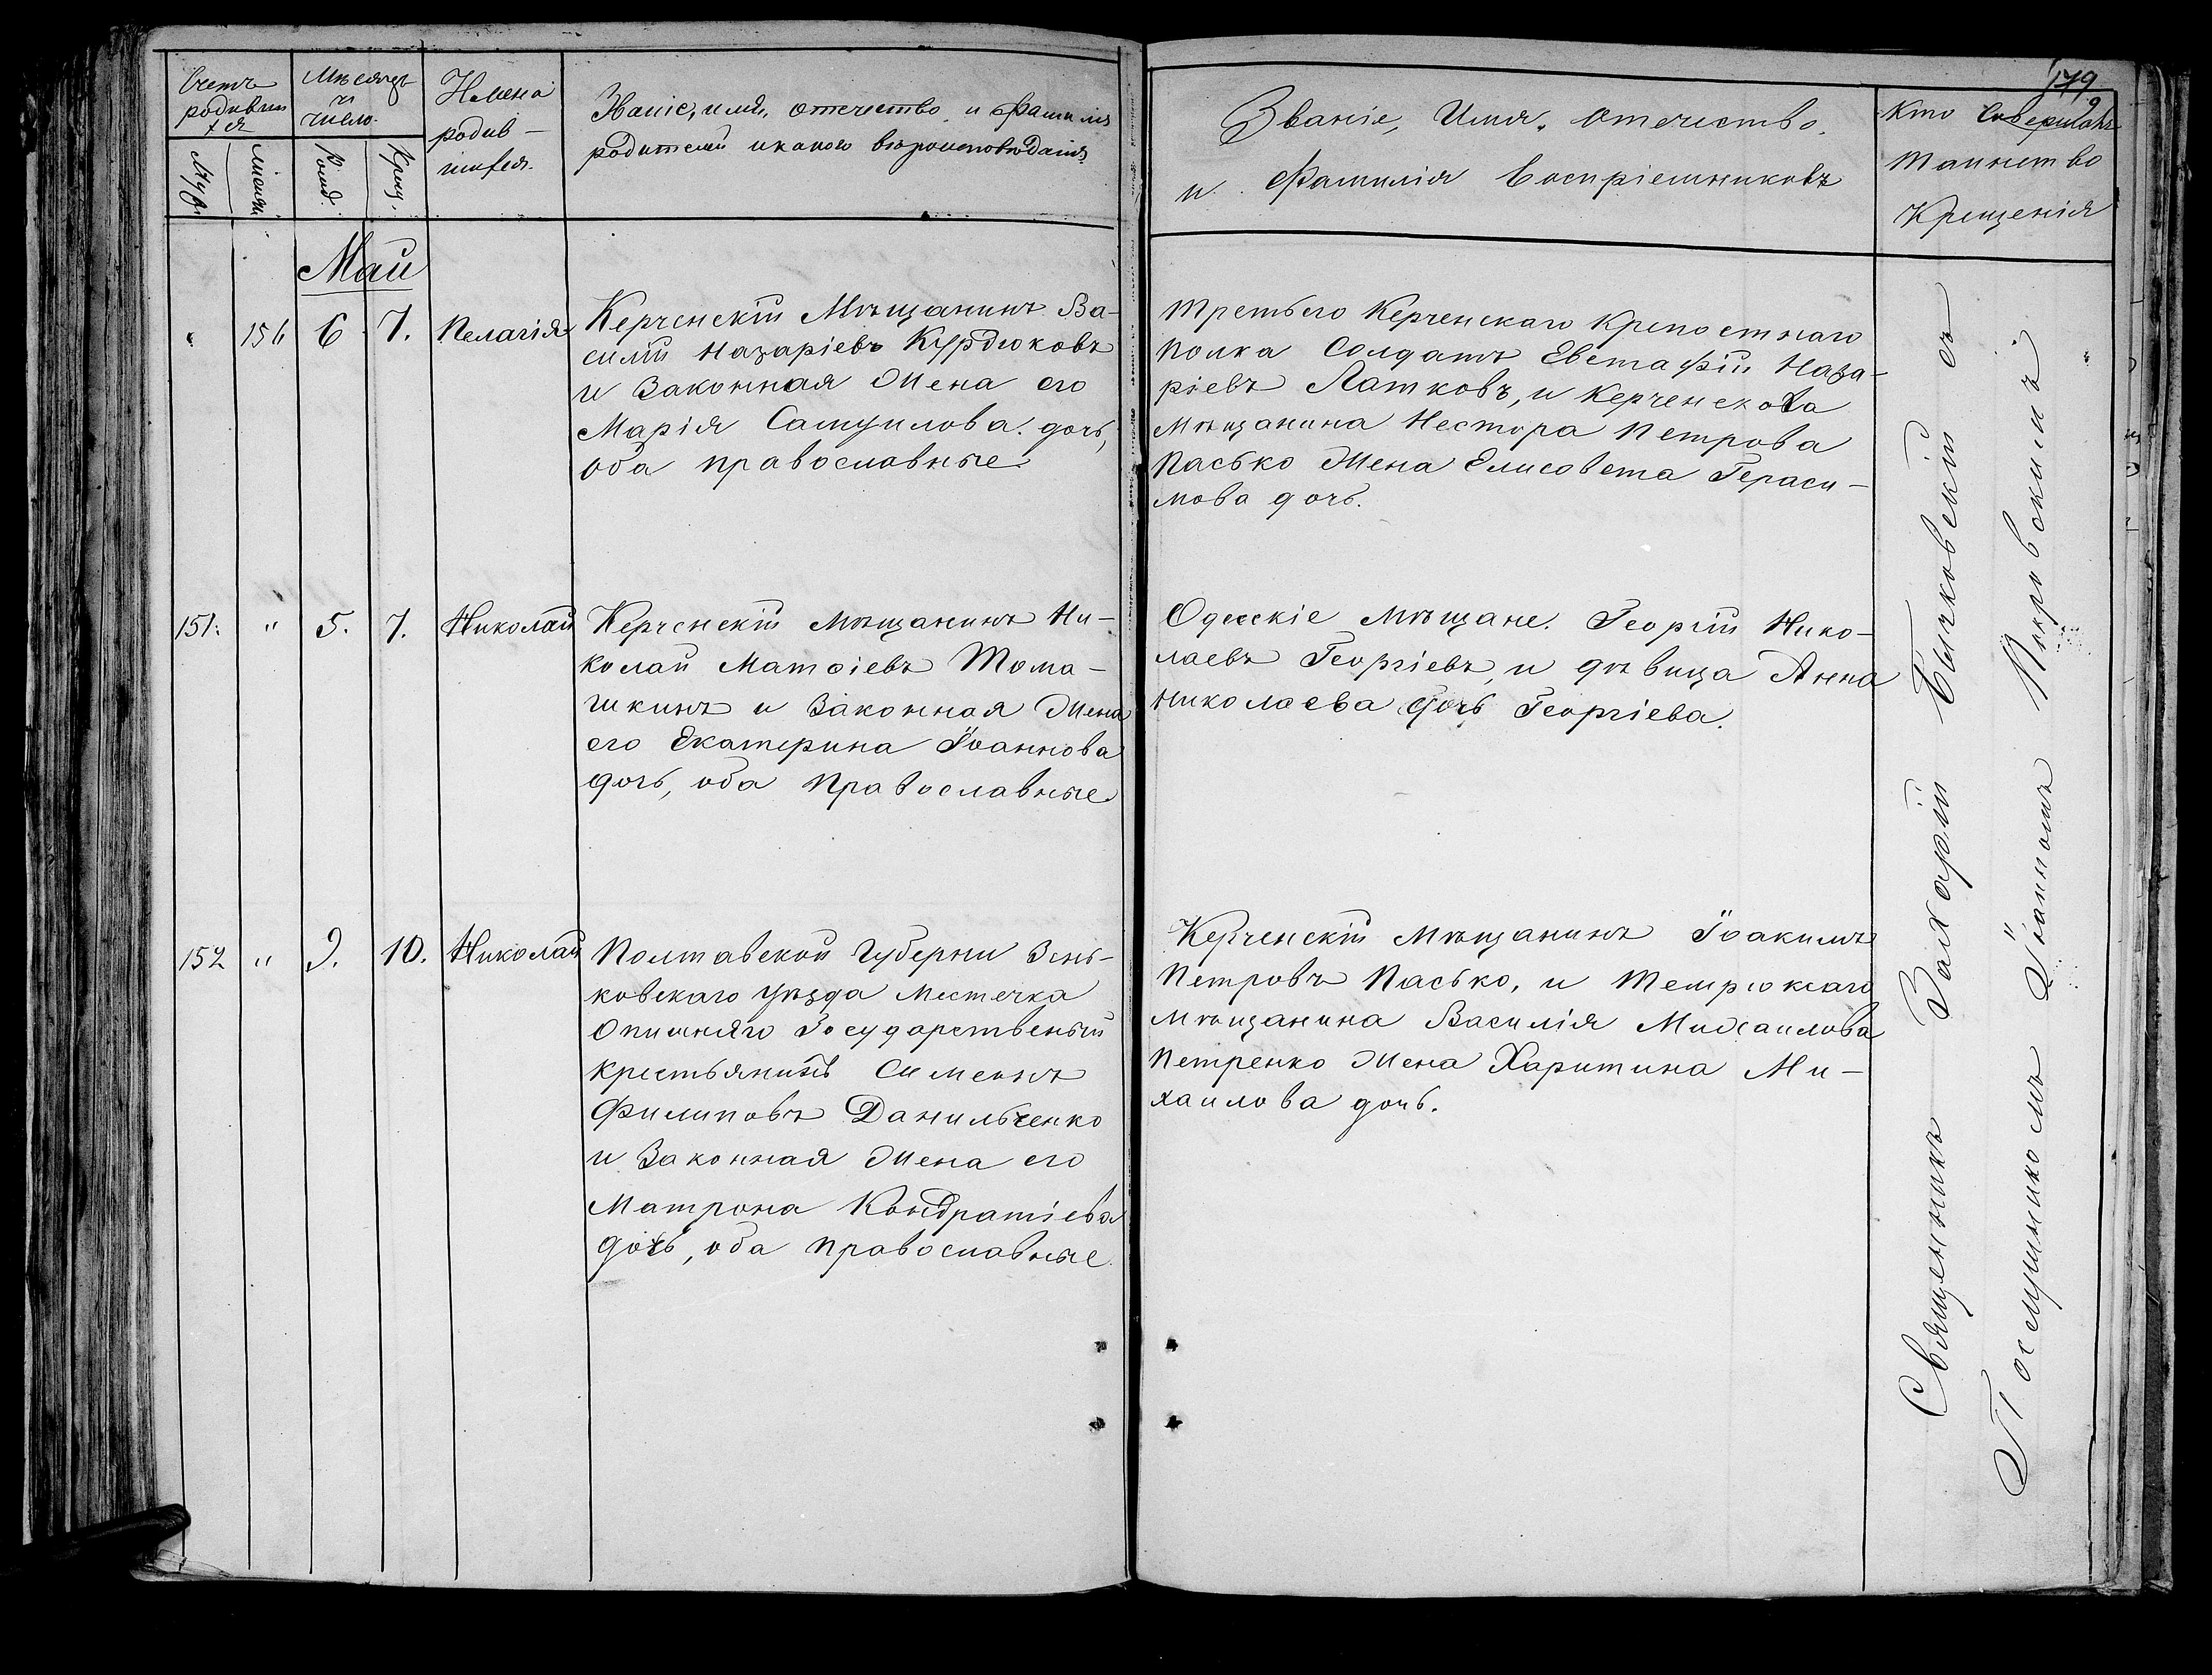 179
Счетъ
родивши
хся
Мѣсяцъ
и
число.
Имена
родив-
шихся.
Званіе, имя, отечество, и фамилія
родителей и какого вѣроисповѣданія
Званіе, Имя, Отечество,
и Фамилія Воспріемниковъ
Кто Совершалъ
Таинство
Крещенія
Муж.
Женск.
Рожд.
Крещ.
Май
156 6 7. Пелагія
Керченскій Мѣщанинъ Ва-
силій Назаріевъ Курдюковъ
и Законная Жена его
Марія Самуилова дочь,
оба православные
Третьего Керченскаго Крепостнаго
полка Солдатъ Евстафій Наза-
ріевъ Латковъ, и Керченскова
Мѣщанина Нестора Петрова
Пасько Жена Елисовета Гераси-
мова дочь.
151. " 5. 7. Николай
Керченскій Мѣщанинъ Ни-
колай Матѳіевъ Тома-
шкинъ и Законная Жена
его Екатерина Іоаннова
дочь, оба Православные
Одесскіе Мѣщане. Георгій Нико-
лаевъ Георгіевъ, и дѣвица Анна
Николаева дочь Георгіева.
152 " 9. 10. Николай
Полтавской Губерни Зень-
ковскаго уѣзда Местечка
Опишняго Государственый
Крестьянинъ Симеонъ
Филиповъ Данильченко
и Законная Жена его
Матрона Кондратіева
дочь, оба православные.
Керченскій Мѣщанинъ Іоакимъ
Петровъ Пасько, и Темрюкскаго
Мѣщанина Василія Михаилова
Петренко Жена Харитина Ми-
хаилова дочь.
Священникъ Захарій Бычковскій съ
Пос­лушникомъ Іоанномъ Покровскимъ